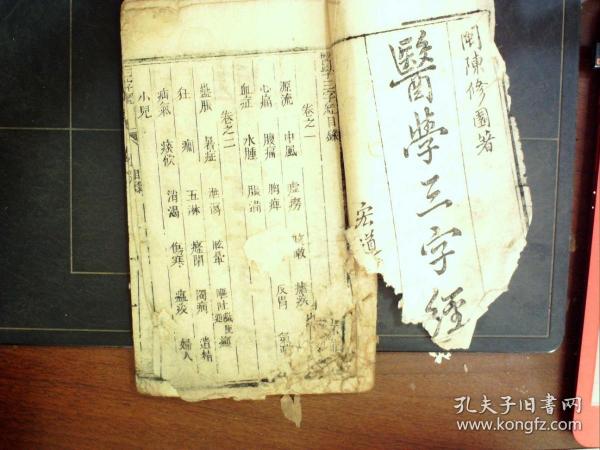 閩陳修園著
醫學三字經
宏道
醫學三字經目錄
卷之一
源流 中風 虛癆 咳嗽 瘧疾
心痛 腹痛 胸痺 反胃
血症 水腫 脹滿
卷之二
蠱脹 暑症 泄瀉 眩暈 嘔吐
狂 癇 五淋 癃閉 濁病 遺精
疝氣 痰飲 消渴 傷寒 瘟疫 婦人
小兒
孔夫子旧书网
www.kongfz.com